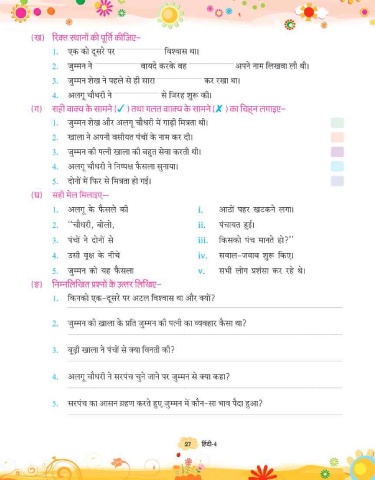 (ख) रिक्त स्थानों की पूर्ति कीजिए–
1. एक को दूसरे पर ____________ विश्वास था।
2. जुम्मन ने ____________ वायदे करके वह ____________ अपने नाम लिखवा ली थी।
3. जुम्मन शेख ने पहले से ही सारा ____________ कर रखा था।
4. अलगू चौधरी ने ____________ से जिरह शुरू की।
(ग) सही वाक्य के सामने (✓) तथा गलत वाक्य के सामने (✗) का चिह्न लगाइए–
1. जुम्मन शेख और अलगू चौधरी में गाढ़ी मित्रता थी।
2. खाला ने अपनी वसीयत पंचों के नाम कर दी।
3. जुम्मन की पत्नी खाला की बहुत सेवा करती थी।
4. अलगू चौधरी ने निष्पक्ष फैसला सुनाया।
5. दोनों में फिर से मित्रता हो गई।
(घ) सही मेल मिलाइए–
1. अलगू के फैसले की i. आठों पहर खटकने लगा।
2. ‘‘चौधरी, बोलो, ii. पंचायत हुई।
3. पंचों ने दोनों से iii. किसको पंच मानते हो?’’
4. उसी वृक्ष के नीचे iv. सवाल-जवाब शुरू किए।
5. जुम्मन को यह फैसला v. सभी लोग प्रशंसा कर रहे थे।
(ङ) निम्नलिखित प्रश्नों के उत्तर लिखिए–
1. किनको एक-दूसरे पर अटल विश्वास था और क्यों?
2. जुम्मन की खाला के प्रति जुम्मन की पत्नी का व्यवहार कैसा था?
3. बूढ़ी खाला ने पंचों से क्या विनती की?
4. अलगू चौधरी ने सरपंच चुने जाने पर जुम्मन से क्या कहा?
5. सरपंच का आसन ग्रहण करते हुए जुम्मन में कौन-सा भाव पैदा हुआ?
27 हिंदी-4